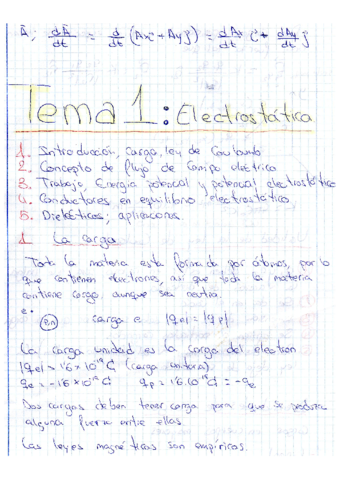 Ā; dĀ/dt = d/dt (Axi + Ayj) = dAx/dt i + dAy/dt j
Tema 1: Electrostática
1. Introducción, Carga, ley de Coulomb
2. Concepto de flujo de Campo eléctrico
3. Trabajo, Energia potencial y potencial electrostático
4. Conductores en equilibrio electrostático
5. Dieléctricos; aplicaciona
1. La carga
Toda la materia esta formada por átomos, por lo
que contienen electrones, asi que toda la materia
contiene carga, aunque sea neutra.
e-
carga e |qe| = |qp|
La carga unidad es la carga del electron
|qe| = 1'6 x 10^-19 C (carga unitaria)
qe = -1'6 x 10^-19 C qp = 1'6.10^-19 C = -qe
Dos cargas deben tener carga para que se produzca
alguna fuerza entre ellas.
Las leyes magnéticas son empíricas.